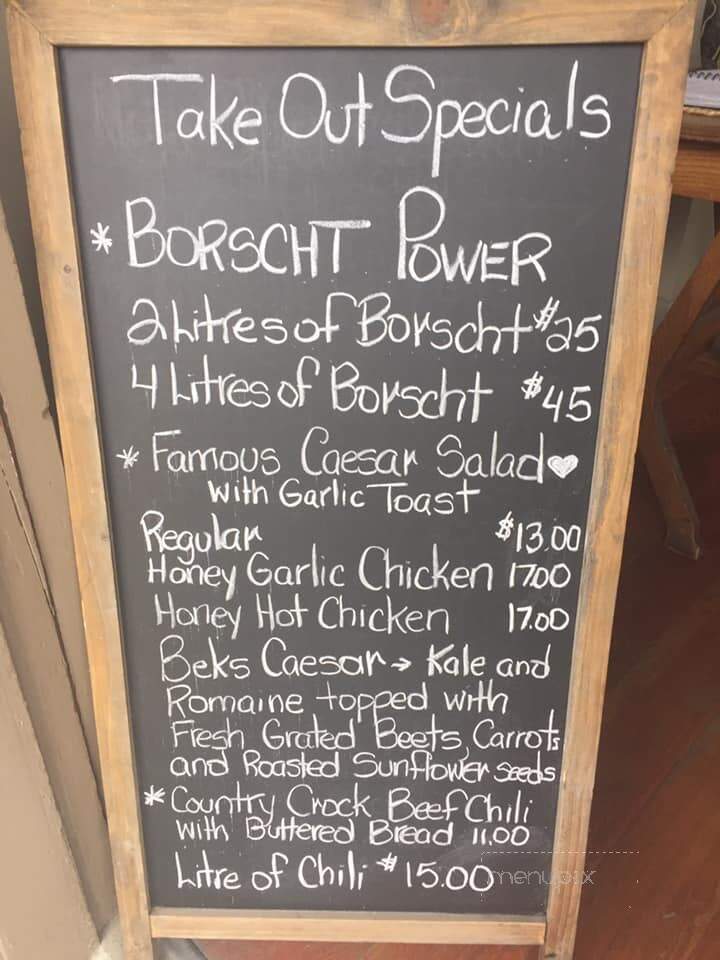 Take Out Specials
* BORSCHT POWER
2 Litres of Borscht $25
4 Litres of Borscht $45
* Famous Caesar Salad
with Garlic Toast
Regular $13.00
Honey Garlic Chicken 17.00
Honey Hot Chicken 17.00
Beks Caesar → Kale and
Romaine topped with
Fresh Grated Beets, Carrots
and Roasted Sunflower seeds
* Country Crock Beef Chili
with Buttered Bread 11.00
Litre of Chili $15.00
menupix